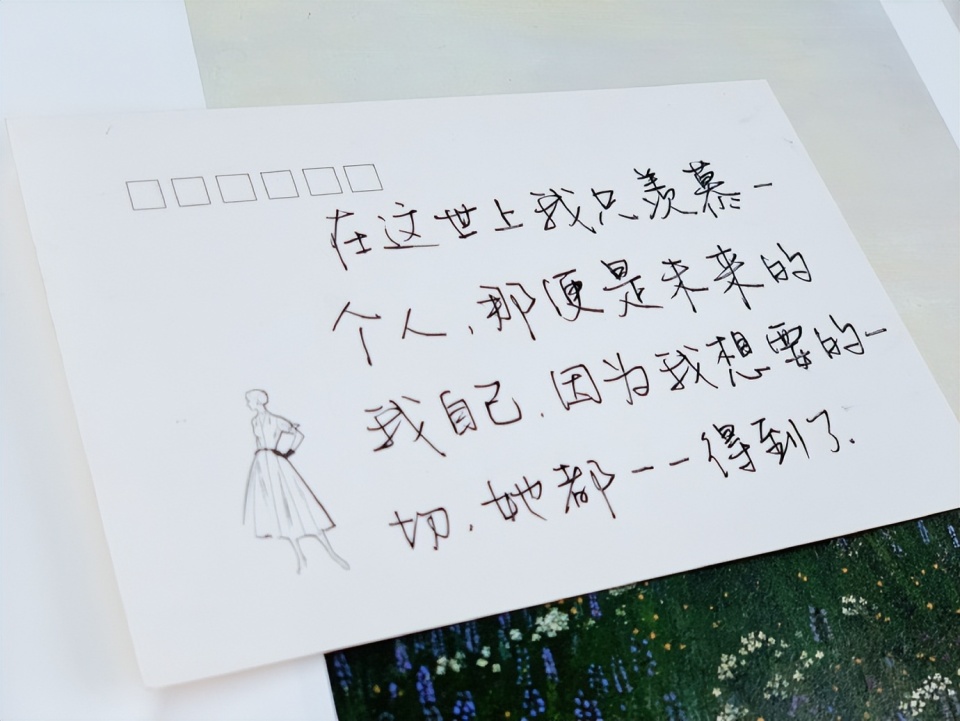 在这世上我只羡慕一
个人,那便是未来的
我自己.因为我想要的一
切,她都一一得到了.